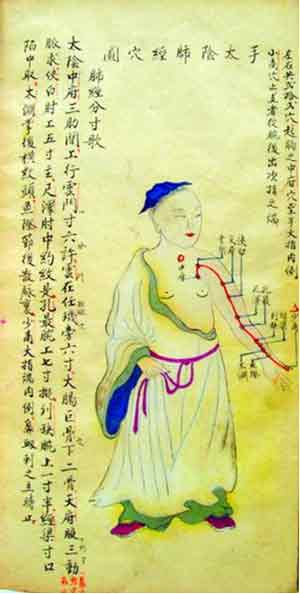 手太陰肺經穴圖
左右共弍拾弍穴起胸之中府穴至手大指内側
少商穴止直者從腕後出次指之端
肺經分寸歌
太陰中府三肋間上行雲門寸六許雲在任璇旁六寸大腸巨骨下二骨天府腋三動
脉求俠白肘上五寸主尺澤肘中約紋是孔最腕上七寸擬列缺腕上一寸半經渠寸口
陷中取太淵掌後横紋頭魚際節後散脉裏少商大指端内側鼻衄刺之立時止
俠白
天府
雲門
中府
尺澤
孔最
列缺
經渠
太淵
魚際
少商